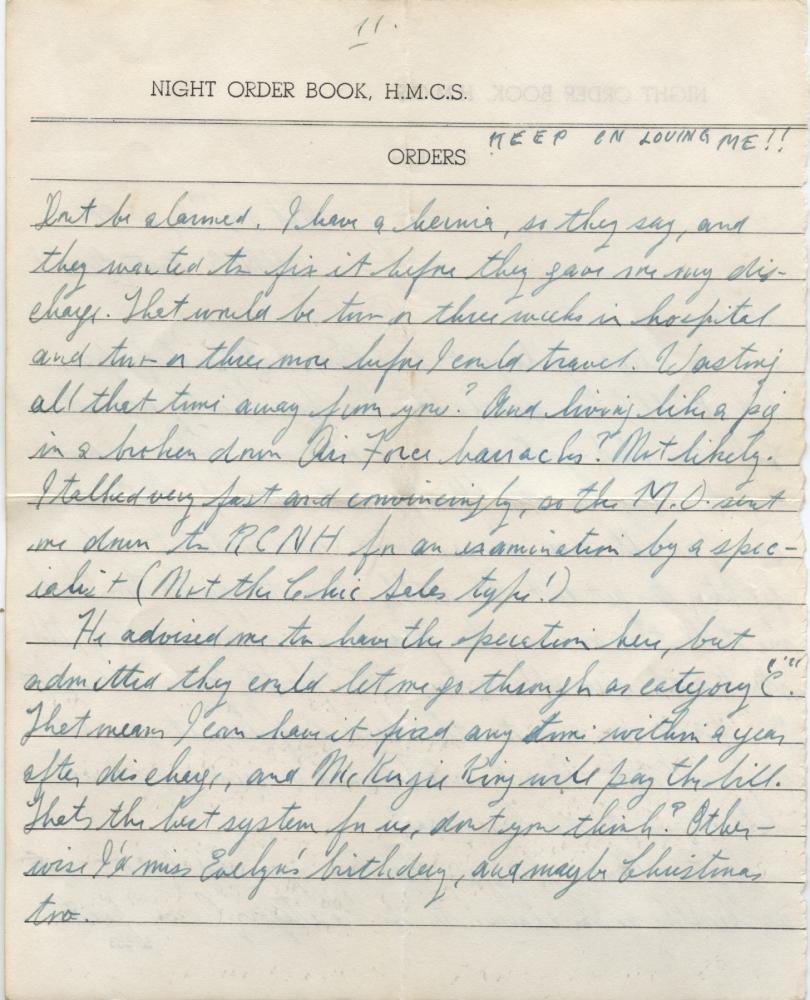 11.
NIGHT ORDER BOOK, H.M.C.S.
KEEP ON LOVING ME!!
ORDERS
Dont be alarmed. I have a hernia, so they say, and
they wanted to fix it before they gave me my dis-
charge. That would be two or three weeks in hospital
and two or three more before I could travel. Wasting
all that time away from you? And living like a pig
in a broken down Air Force barracks? Not likely.
I talked very fast and convincingly, so the M.O. sent
me down to RCNH for an examination by a spec-
ialist (Not the Chic Sales type!)
He advised me to have the operation here, but
admitted they could let me go through as category "C".
That means I can have it fixed any time within a year
after discharge, and McKenzie King will pay the bill.
Thats the best system for us, dont you think? Other-
wise I'd miss Evelyn's birthday, and maybe Christmas
too.